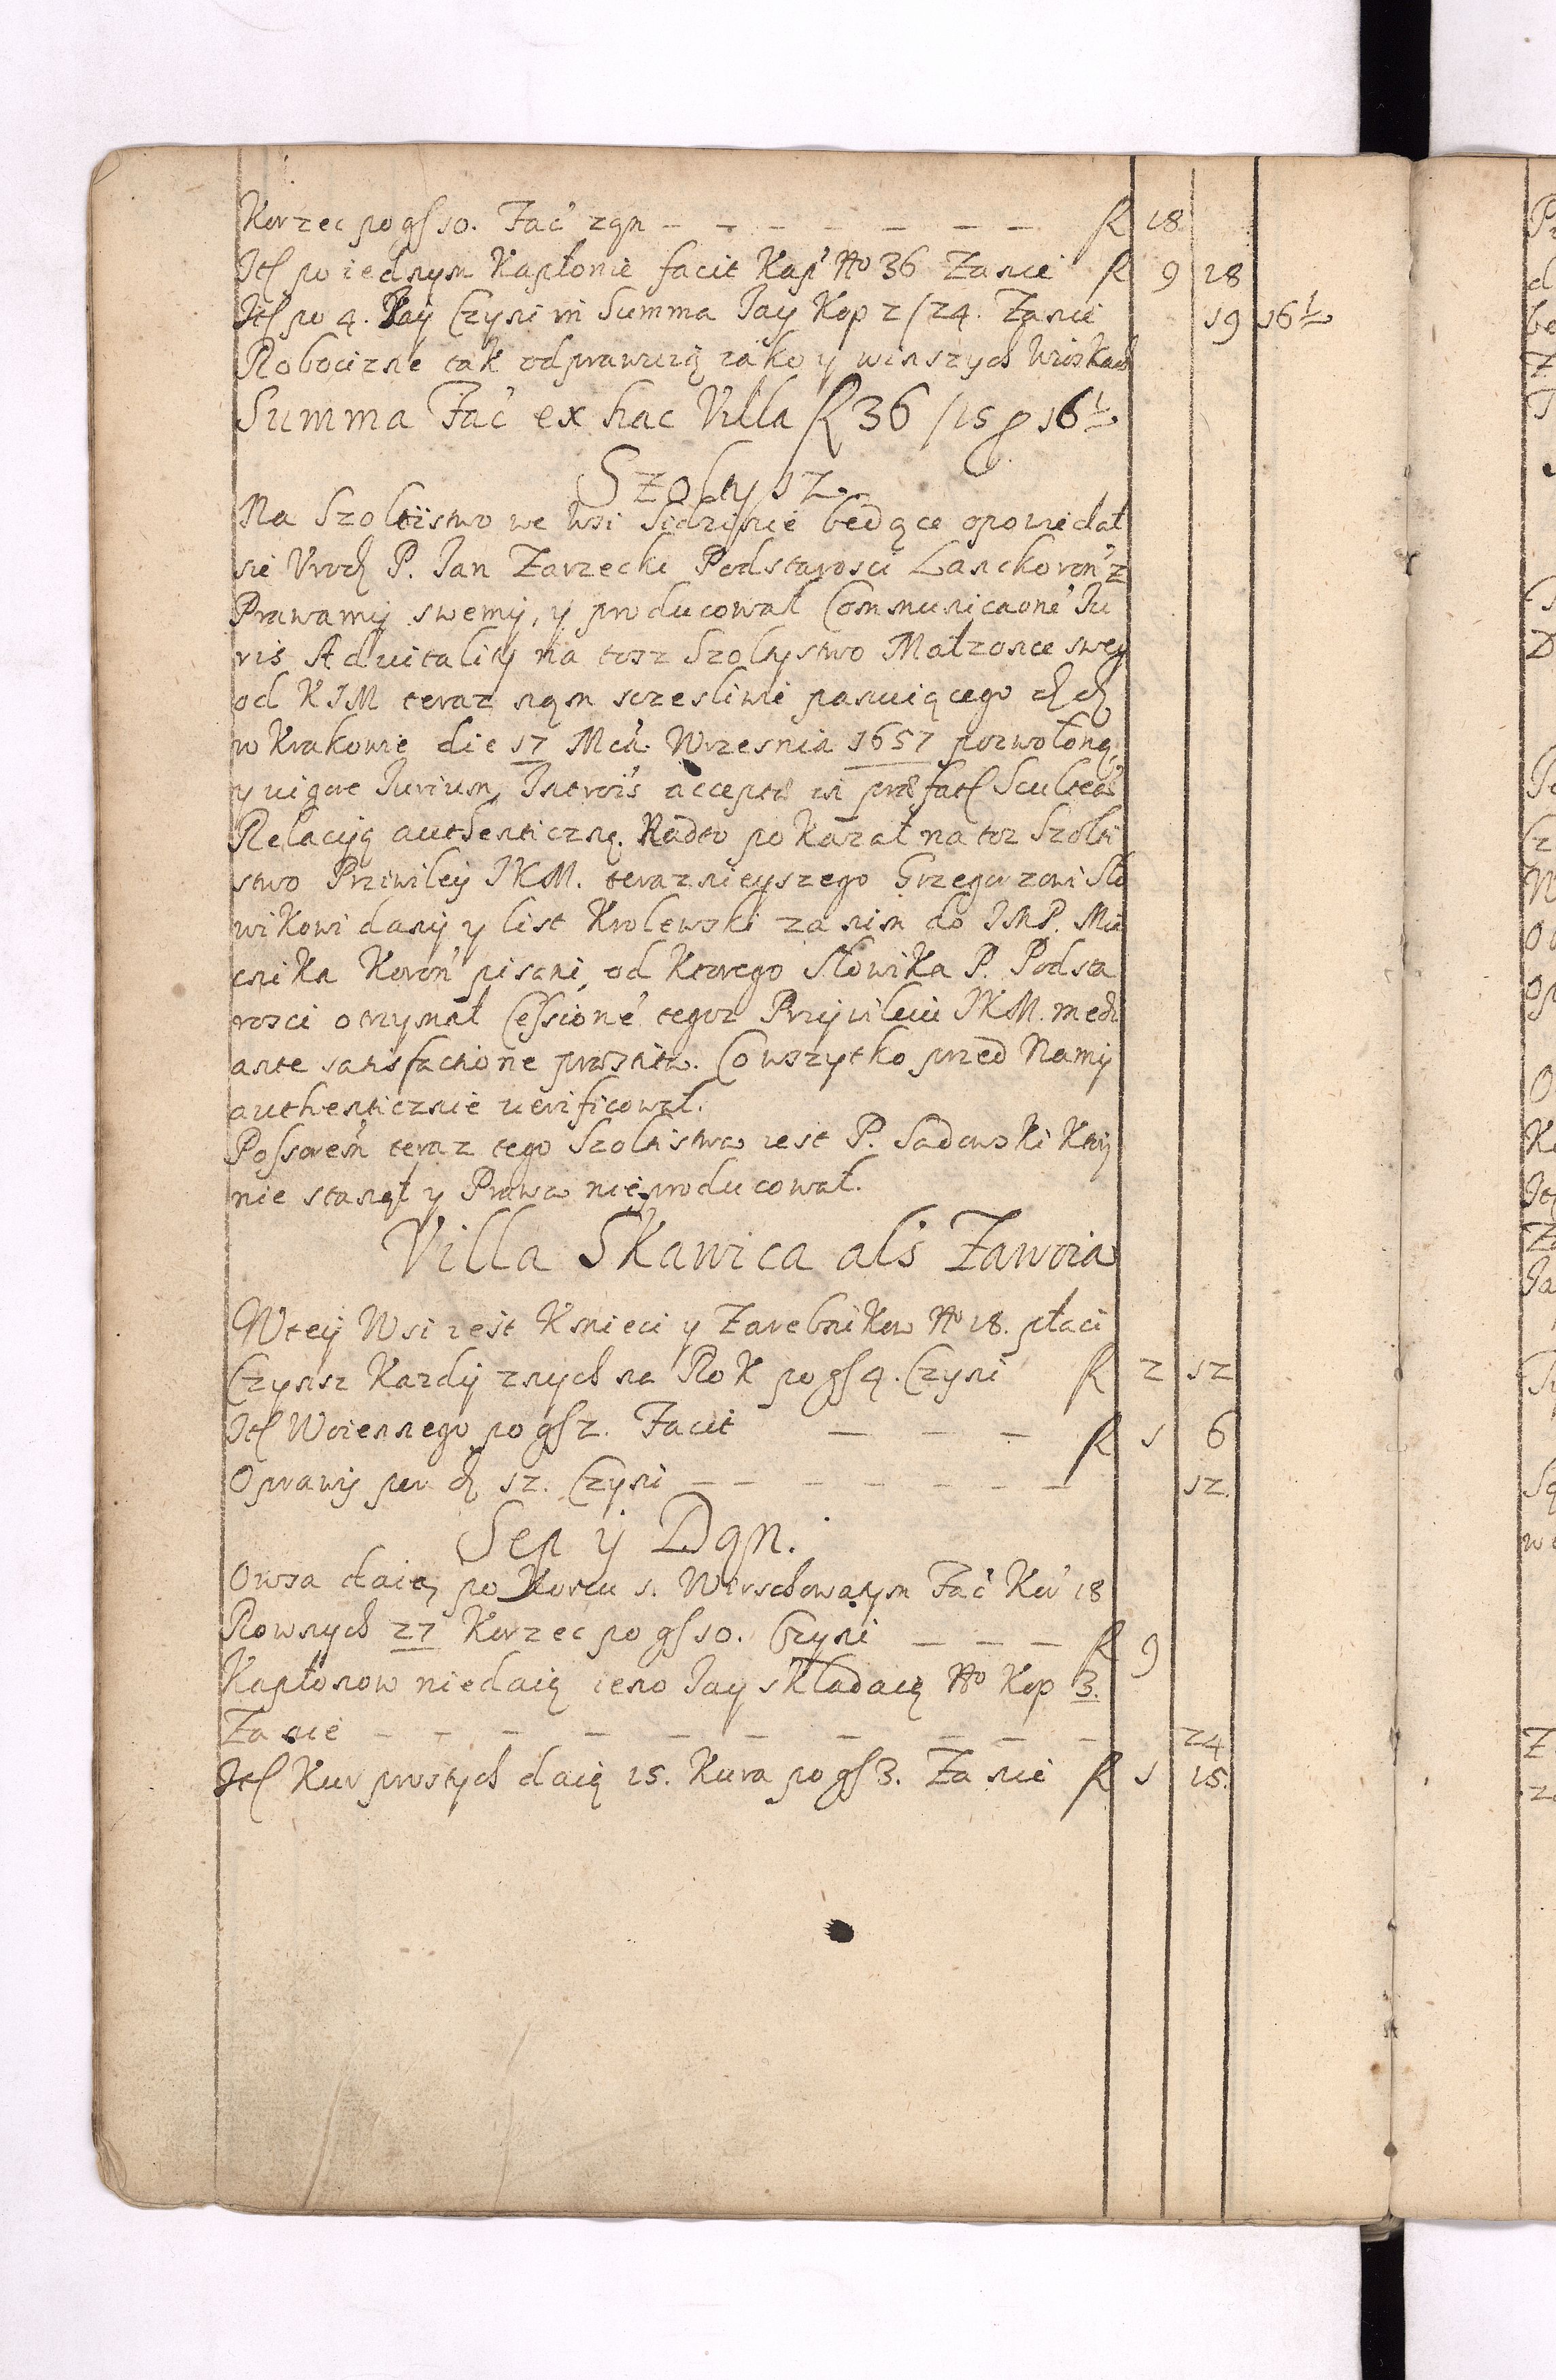 Korzec po gr 10. Fac' zgn — — — — — — — fl 18
Itē po iednym Kapłonie facit Kap' No 36 Za nie fl 9 18
Itē po 4. Jay Czyni in Summa Jay Kop 2/24. Za nie 19 16½
Robocizne tak odprawuią iako y winszych wioskach
Summa Fac' ex hac Villa fl 36 /15 g 16½
Szołtysz
Na Szoltistwo we wsi Sidzinie będące opowiedał
sie Urodz P. Jan Zarzecki Podstarosci Lanckoron' z
Prawamy swemy, y producował Communicaone' Ju
ris Advitality na tosz Szoltystwo Małzonce swey
od KJM teraz nąm sczesliwie panuiącego
w Krakowie die 17 Mca. Wrzesnia 1657 pozwoloną
y vigore Jurium, Introis' acceptæ in præfatę Sculteis'
Relacyją authenticzną. Nadto pokazał na toz Szolti
stwo Przwiley JKM. teraznieyszego Grzegorzowi Sło
wikowi dany y list Krolewski za nim do JMP. Mie
cnika Koron' pisany, od ktorego Słowika P. Podsta
rosci otrzymał Cessione' tegoz Przyvileiu JKM. medi
ante satisfactione præstita. Co wszytko przed Namy
authenticznie verificował.
Possorem' teraz tego Szoltistwa iest P. Sadowski Ktry
nie stanął y Prawa nieproducował.
Villa Skawica als Zawoia
W tey Wsi iest Kmieci y Zarebnikow No 18. płaci
Czynsz Kazdy znych na Rok po gr 4. Czyni fl 2 12
Itē Woiennego po gr 2. Facit — — — fl 1 6
Oprawy per 12. Czyni — — — — — — — 12.
Sep y Dgn.
Owsa daią po Korcu 1. Wirzchowatym Fac' Kor' 18
Rownych 27 Korzec po gr 10. Czyni — — — fl 9
Kapłonow niedaią ieno Jay składaią No Kop 3.
Za nie — — — — — — — — — 24
Itē Kur prostych daią 15. Kura po gr 3. Za nie fl 1 15.